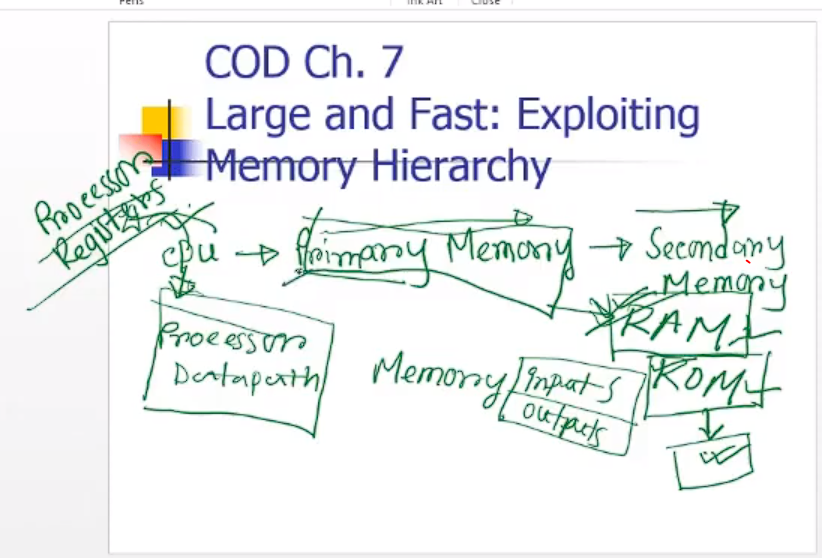 Pens Ink Art Close
COD Ch. 7
Large and Fast: Exploiting
Memory Hierarchy
Processor
Registers
CPU → Primary Memory → Secondary
Memory
RAM
Processor
Datapath
Memory
inputs
outputs
ROM